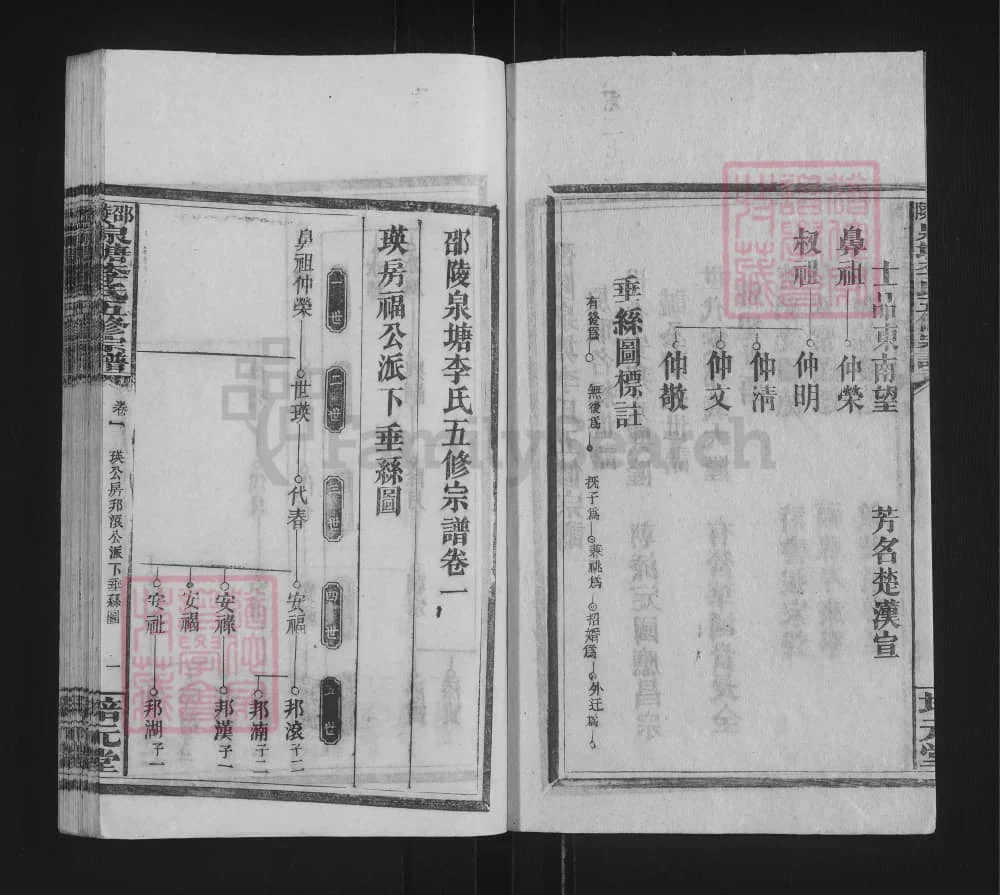 士品東南望
芳名楚漢宣
鼻祖
仲榮
叔祖
仲明
仲清
仲文
仲敬
垂絲圖標註
有後爲
無後爲
撫子爲
兼祧爲
招婿爲
外迁爲
培元堂
邵陵泉塘李氏五修宗譜卷一
瑛房福公派下垂絲圖
一世
二世
三世
四世
五世
鼻祖仲榮
世瑛
代春
安福
邦滾子二
邦湳子二
安祿
邦漢子一
安禍
安祉
邦湖子一
邵陵泉塘李氏五修宗譜
卷一
瑛公房邦滾公派下垂絲圖
一
培元堂
FamilySearch